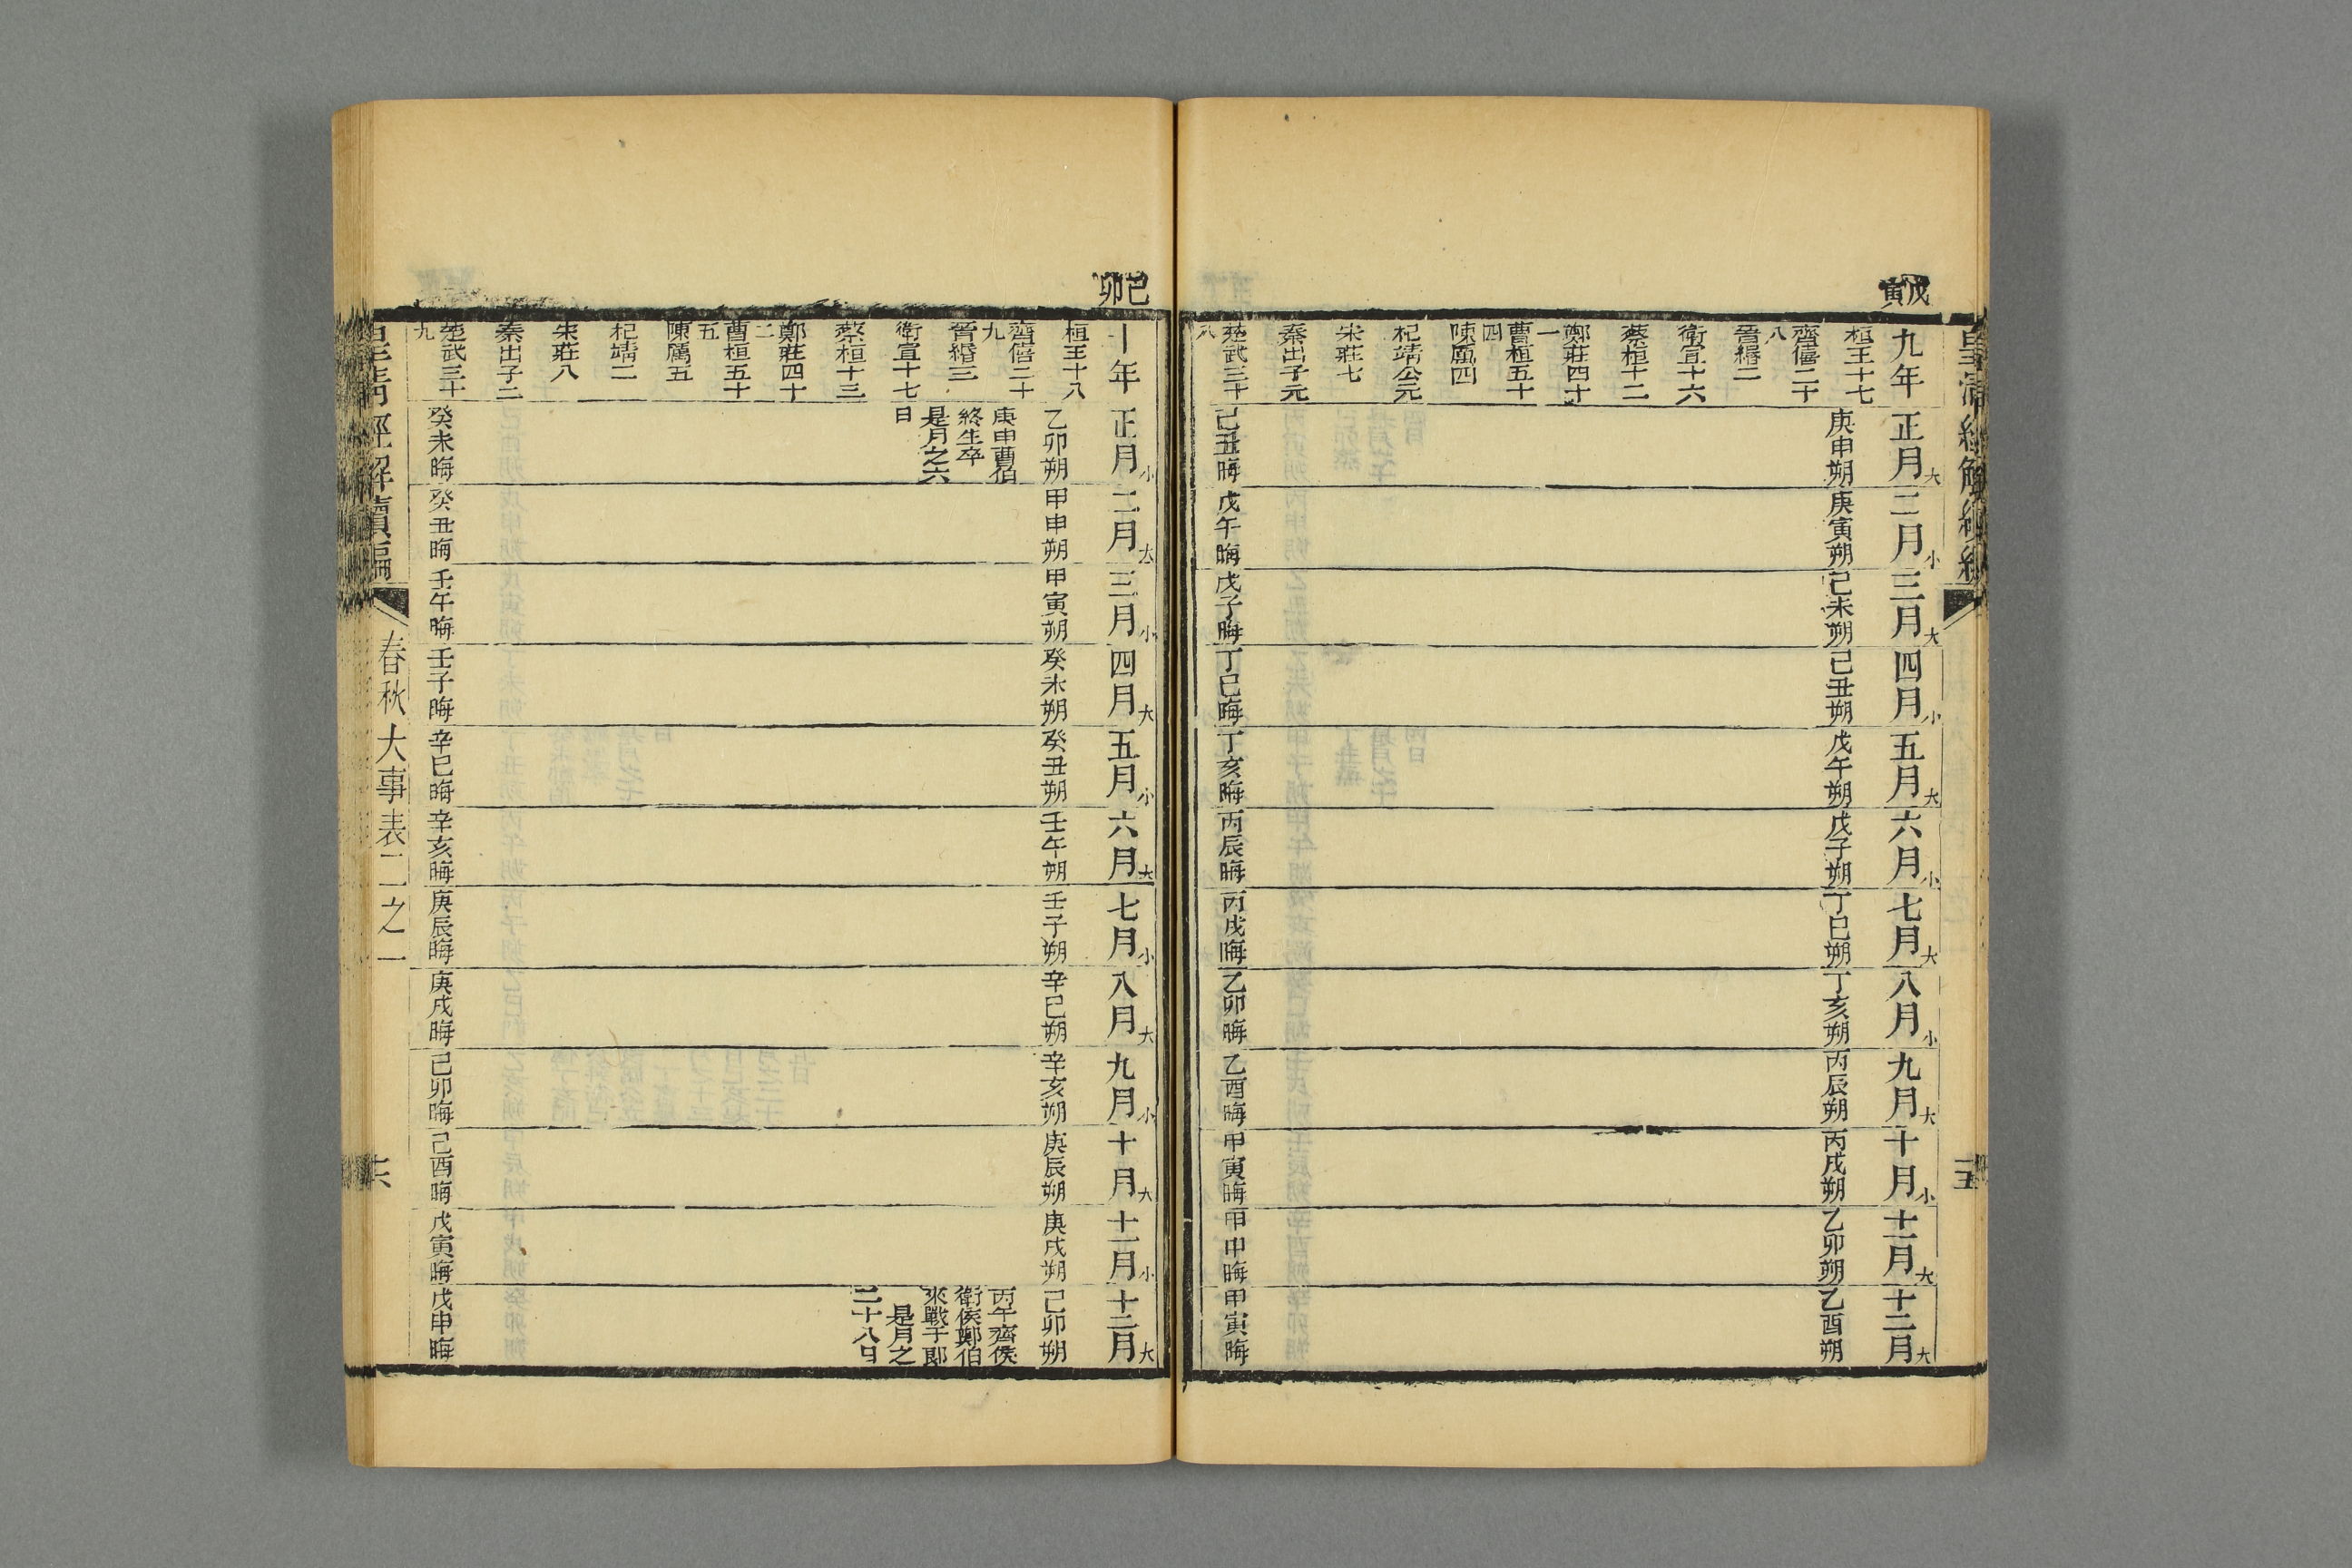 皇清經解續編
五
戊寅
九年
桓王十七
齊僖二十八
晉緡二
衛宣十六
蔡桓十二
鄭莊四十一
曹桓五十四
陳厲四
杞靖公元
宋莊七
秦出子元
楚武三十八
正月大
庚申朔
己丑晦
二月小
庚寅朔
戊午晦
三月大
己未朔
戊子晦
四月小
己丑朔
丁巳晦
五月大
戊午朔
丁亥晦
六月小
戊子朔
丙辰晦
七月大
丁巳朔
丙戌晦
八月小
丁亥朔
乙卯晦
九月大
丙辰朔
乙酉晦
十月小
丙戌朔
甲寅晦
十一月大
乙卯朔
甲申晦
十二月大
乙酉朔
甲寅晦
己卯
十年
桓王十八
齊僖二十九
晉緡三
衛宣十七
蔡桓十三
鄭莊四十二
曹桓五十五
陳厲五
杞靖二
宋莊八
秦出子二
楚武三十九
正月小
乙卯朔
庚申曹伯
終生卒
是月之六
日
癸未晦
二月大
甲申朔
癸丑晦
三月小
甲寅朔
壬午晦
四月大
癸未朔
壬子晦
五月小
癸丑朔
辛巳晦
六月大
壬午朔
辛亥晦
七月小
壬子朔
庚辰晦
八月大
辛巳朔
庚戌晦
九月小
辛亥朔
己卯晦
十月大
庚辰朔
己酉晦
十一月小
庚戌朔
戊寅晦
十二月大
己卯朔
丙午齊侯
衛侯鄭伯
來戰于郎
是月之
二十八日
戊申晦
皇清經解續編
春秋大事表二之一
六